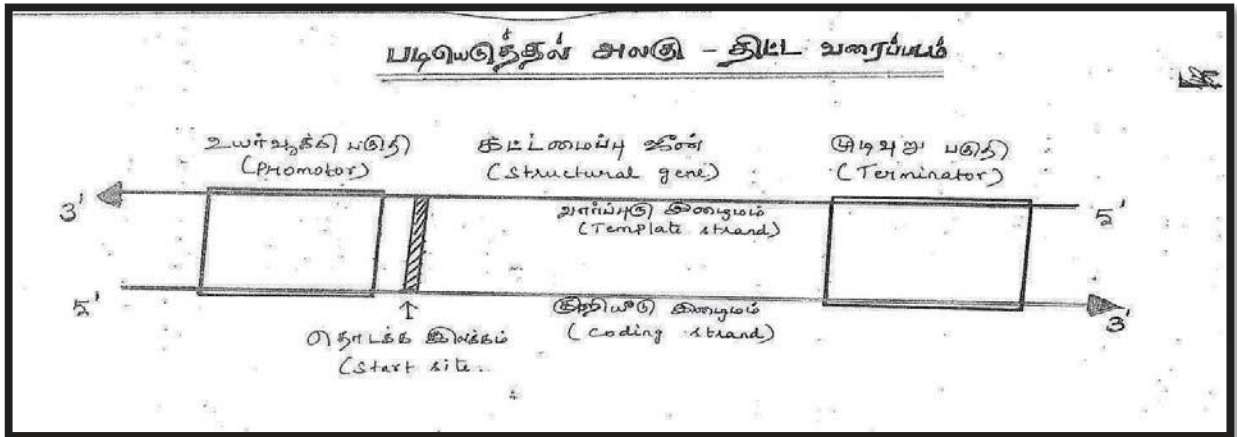 படியெடுத்தல் அலகு - திட்ட வரைப்படம்
உயர்வூக்கி பகுதி
(Promotor)
கட்டமைப்பு ஜீன்
(Structural gene)
முடிவுறு பகுதி
(Terminator)
3'
வார்ப்புரு இழைமம்
(Template strand)
5'
5'
குறியீடு இழைமம்
(Coding strand)
3'
தொடக்க இலக்கம்
(Start site.